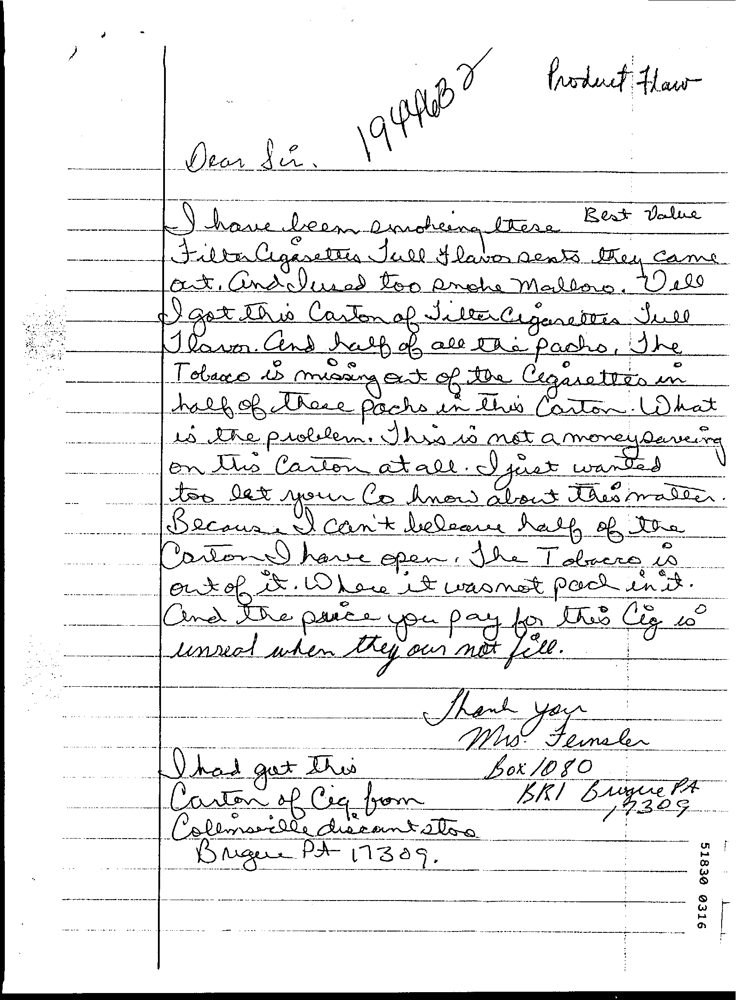 Product Flaw
1944632
Dear Sir.
Best Value
I have been smokeing these
Filter Cigarettes Full Flavor sents they came
out. And I used too smoke Malloro. Well
I got this Carton of Filter Cigarettes Full
Flavor. And half of all the packs, The
Tobacco is missing out of the Cigarettes in
half of these packs in this Carton. What
is the problem. This is not a money saveing
on this Carton at all. I just wanted
too let your Co know about this matter.
Becaus. I can't beleave half of the
Carton I have open. The Tobacco is
out of it. Where it was not pack in it.
And the price you pay for this Cig is
unreal when they our not fill.
Thank you
Mrs. Feinsler
Box 1080
BR1 Brogue PA
17309
I had got this
Carton of Cig from
Collinsville discount stoo
Brogue PA 17309.
51830 0316